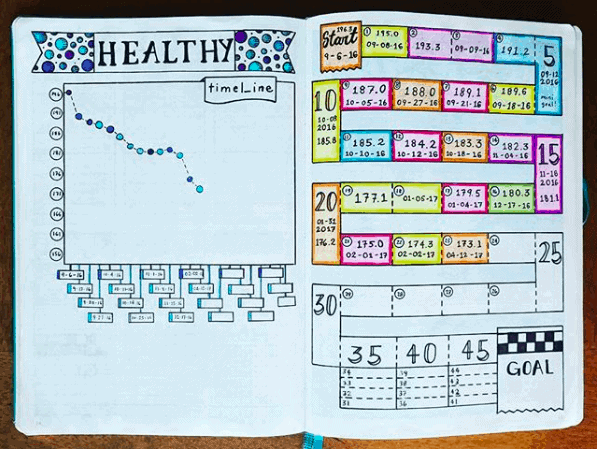 HEALTHY
timeline
196
191
186
181
176
171
166
161
156
9-6-16
196.5
Start
9-6-16
1 195.0
09-08-16
2 193.3
3 09-09-16
4 191.2
5
09-12
2016
mini
goal!
10
10-08
2016
185.8
9 187.0
10-05-16
8 188.0
09-27-16
7 189.1
09-21-16
6 189.6
09-18-16
11 185.2
10-10-16
12 184.2
10-12-16
13 183.3
10-18-16
14 182.3
11-04-16
15
11-18
2016
181.1
20
01-31
2017
176.2
19 177.1
18 01-05-17
17 179.5
01-04-17
16 180.3
12-17-16
21 175.0
02-01-17
22 174.3
02-02-17
23 173.1
04-12-17
24
25
30
29
28
27
26
35 40 45
34 39 44
33 38 43
32 37 42
31 36 41
GOAL